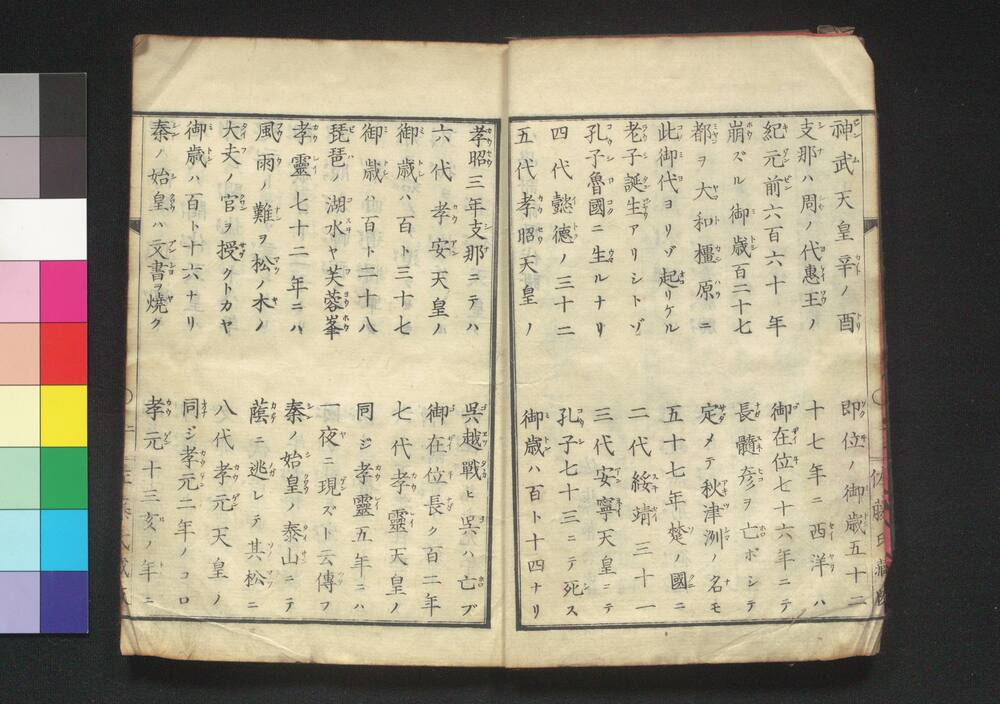 神武天皇辛ノ酉　即位ノ御歳五十二
支那ハ周ノ代惠王ノ　十七年ニ西洋ハ
紀元前六百六十年　御在位七十六年ニテ
崩ズル御歳百二十七　長髓彦ヲ亡ボシテ
都ヲ大和橿原ニ　定メテ秋津洲ノ名モ
此御代ヨリゾ起リケル　五十七年楚ノ國ニ
老子誕生アリシトゾ　二代綏靖三十一
孔子魯國ニ生ルナリ　三代安寧天皇ニテ
四代懿德ノ三十二　孔子七十三ニテ死ス
五代孝昭天皇ノ　御歳ハ百ト十四ナリ
孝昭三年支那ニテハ　吳越戰ヒ吳ハ亡ブ
六代孝安天皇ノ　御在位長ク百二年
御歳ハ百ト三十七　七代孝靈天皇ノ
御歳ハ百ト二十八　同ジ孝靈五年ニハ
琵琶ノ湖水ヤ芙蓉峯　一夜ニ現ズト云傳フ
孝靈七十二年ニハ　秦ノ始皇ノ泰山ニテ
風雨ノ難ヲ松ノ木ノ　蔭ニ逃レテ其松ニ
大夫ノ官ヲ授クトカヤ　八代孝元天皇ノ
御歳ハ百ト十六ナリ　同ジ孝元二年ノコロ
秦ノ始皇ハ文書ヲ燒ク　孝元十三亥ノ年ニ